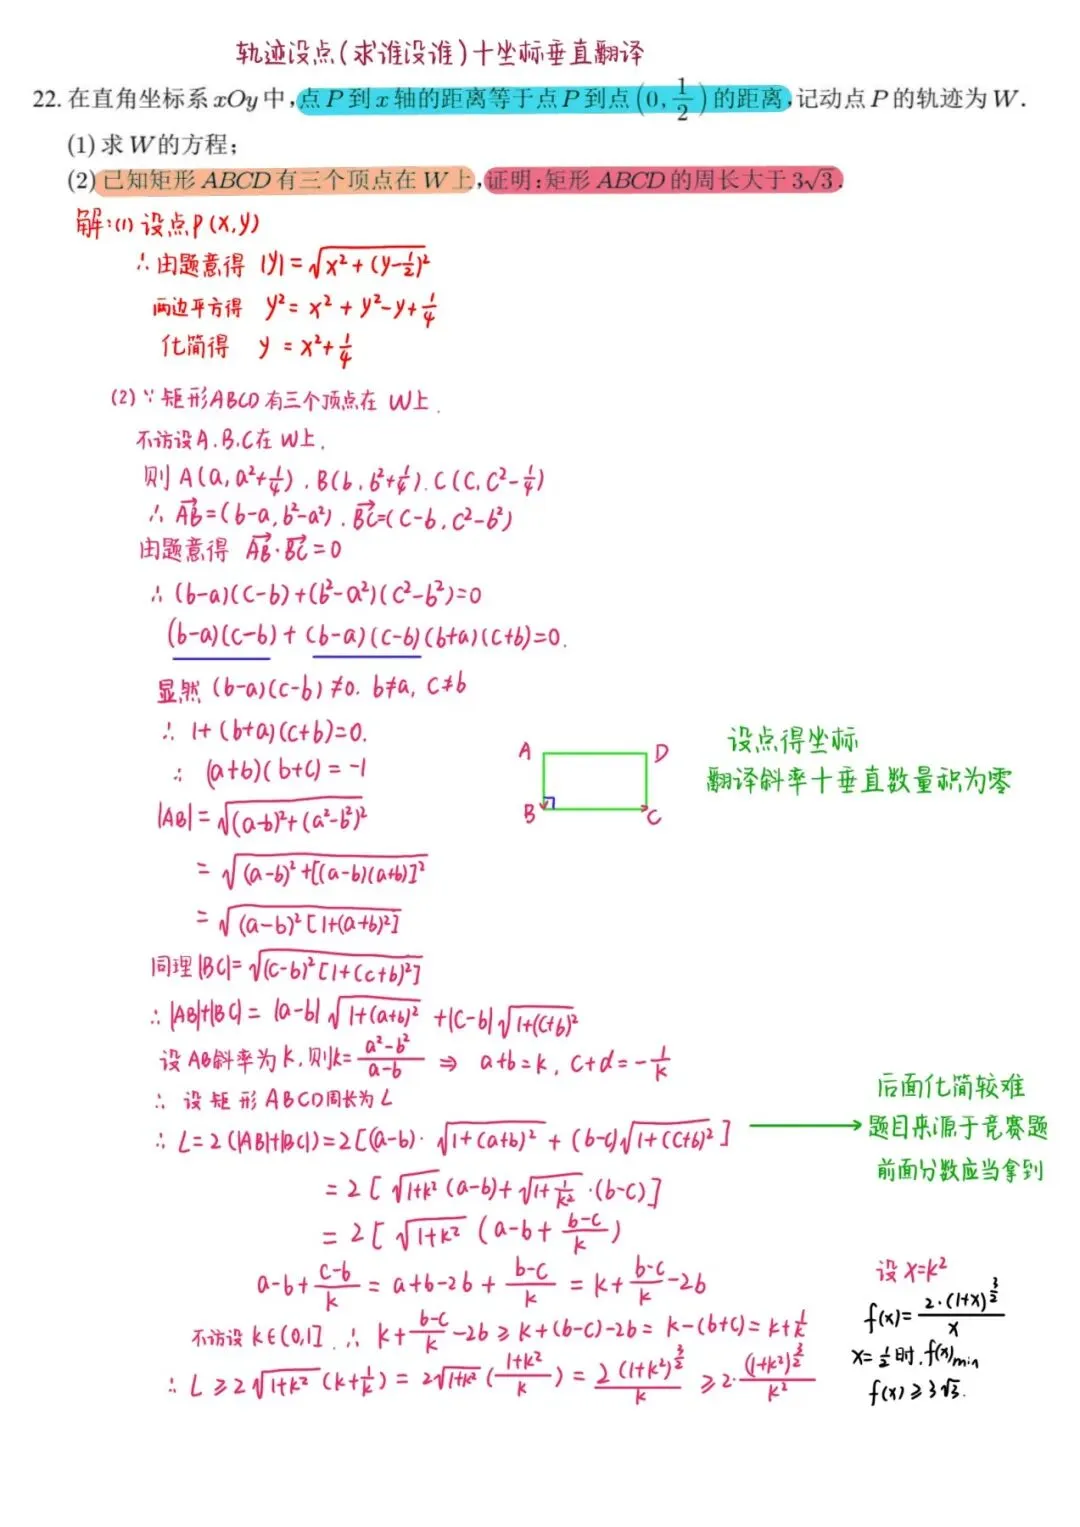 轨迹设点(求谁设谁)十坐标垂直翻译
22. 在直角坐标系 xOy 中,点 P 到 x 轴的距离等于点 P 到点 (0, 1/2) 的距离,记动点 P 的轨迹为 W.
(1) 求 W 的方程;
(2) 已知矩形 ABCD 有三个顶点在 W 上,证明:矩形 ABCD 的周长大于 3√3.
解:(1) 设点P(x,y)
∴ 由题意得 |y|=√(x²+(y-1/2)²)
两边平方得 y²= x²+y²-y+1/4
化简得 y = x²+1/4
(2) ∵ 矩形ABCD有三个顶点在 W上.
不访设A.B.C在 W上.
则 A(a, a²+1/4). B(b, b²+1/4). C(C, C²-1/4)
∴ AB→=(b-a, b²-a²). BC→=(C-b, C²-b²)
由题意得 AB→·BC→=0
∴ (b-a)(C-b)+(b²-a²)(C²-b²)=0
(b-a)(c-b)+(b-a)(c-b)(b+a)(c+b)=0.
显然 (b-a)(c-b)≠0. b≠a, C≠b
∴ 1+(b+a)(c+b)=0.
∴ (a+b)(b+c)=-1
A D
B C
设点得坐标
翻译斜率十垂直数量积为零
|AB|=√((a-b)²+(a²-b²)²)
=√((a-b)²+[(a-b)(a+b)]²)
=√((a-b)²[1+(a+b)²])
同理|BC|=√((c-b)²[1+(c+b)²])
∴ |AB|+|BC|= |a-b|√(1+(a+b)²) +|C-b|√(1+(C+b)²)
设 AB斜率为 k, 则k=(a²-b²)/(a-b) ⇒ a+b=k, c+d=-1/k
∴ 设矩形ABCD周长为L
∴ L=2(|AB|+|BC|)=2[(a-b)·√(1+(a+b)²)+(b-c)√(1+(C+b)²)]
后面化简较难
题目来源于竞赛题
前面分数应当拿到
=2[√(1+k²)(a-b)+√(1+1/k²)·(b-c)]
=2[√(1+k²)(a-b+(b-c)/k)
a-b+(c-b)/k = a+b-2b+(b-c)/k = k+(b-c)/k-2b
不访设 k∈(0,1]. ∴ k+(b-c)/k-2b ≥ k+(b-c)-2b= k-(b+c)= k+1/k
∴ L≥2√(1+k²)(k+1/k)=2√(1+k²)((1+k²)/k)=2(1+k²)^(3/2)/k ≥2·(1+k²)^(3/2)/k²
设 x=k²
f(x)=2·(1+x)^(3/2)/x
x=1/2时,f(x)min
f(x)≥3√3.